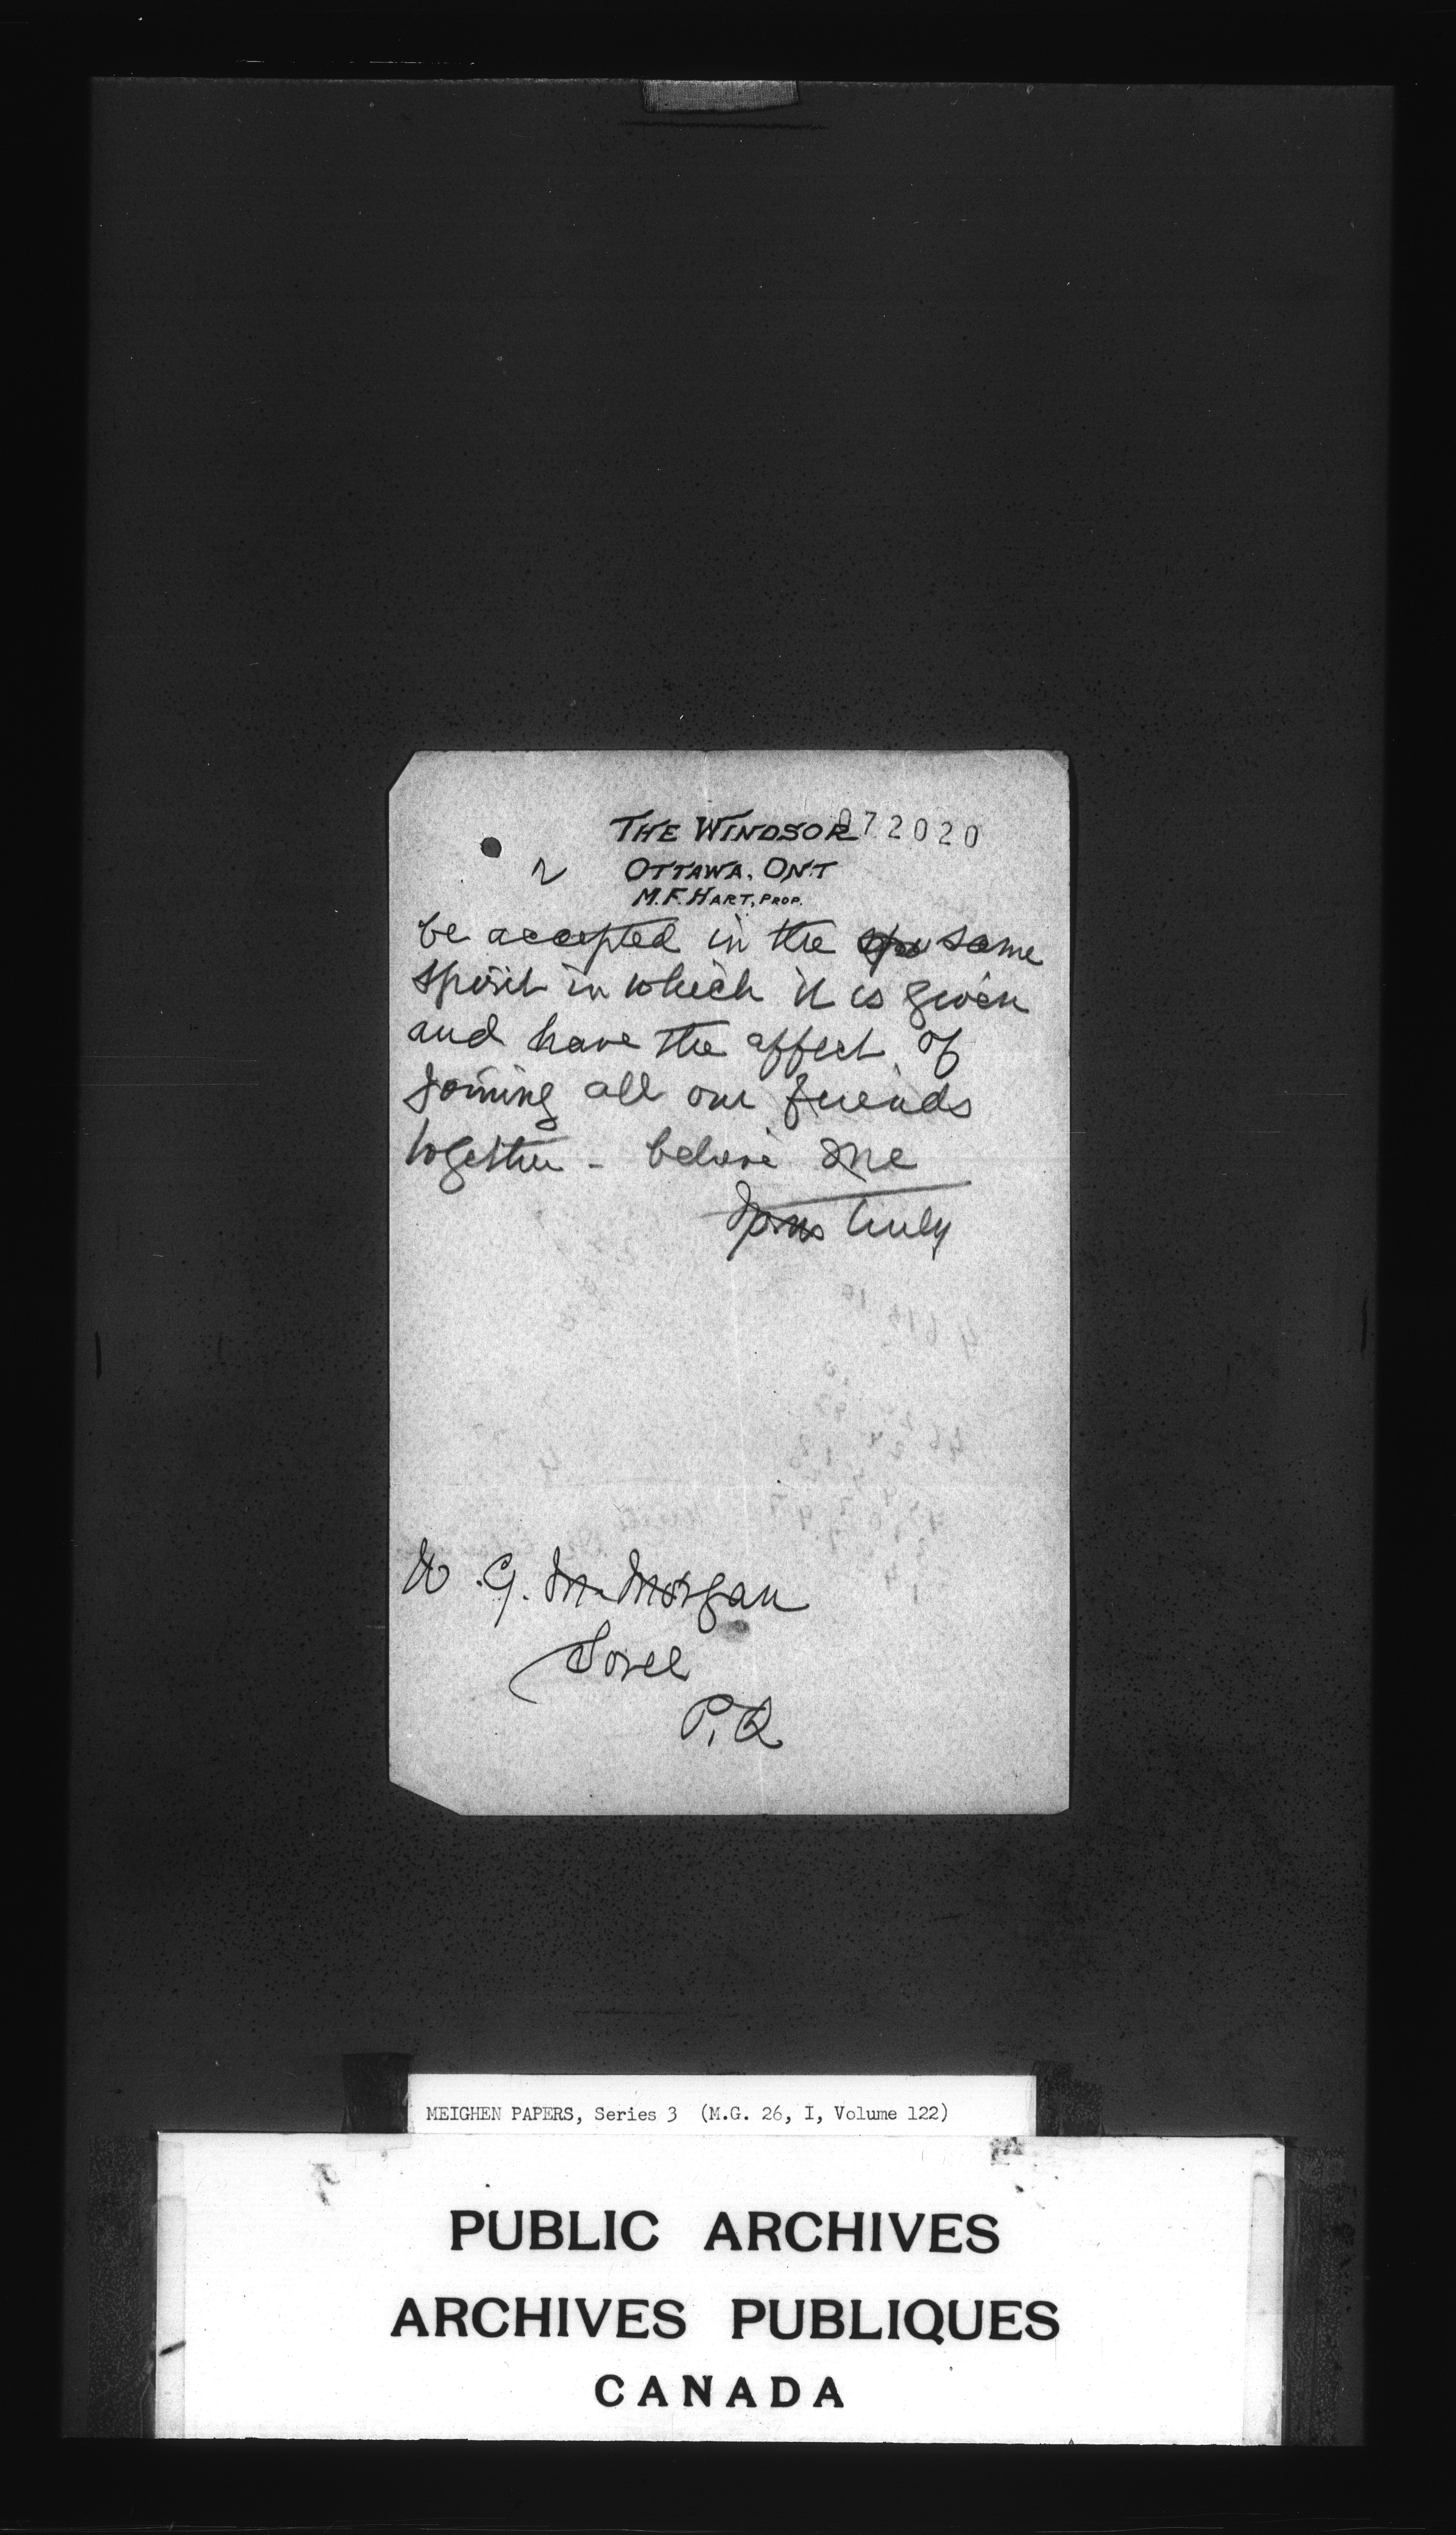 THE WINDSOR 072020
2 OTTAWA, ONT
M.F. HART, PROP.
be accepted in the spi same
spirit in which it is given
and have the affect of
Joining all our friends
together - believe me
Yours truly
W. G. M. Morgan
Sorel
P.Q
MEIGHEN PAPERS, Series 3 (M.G. 26, I, Volume 122)
PUBLIC ARCHIVES
ARCHIVES PUBLIQUES
CANADA